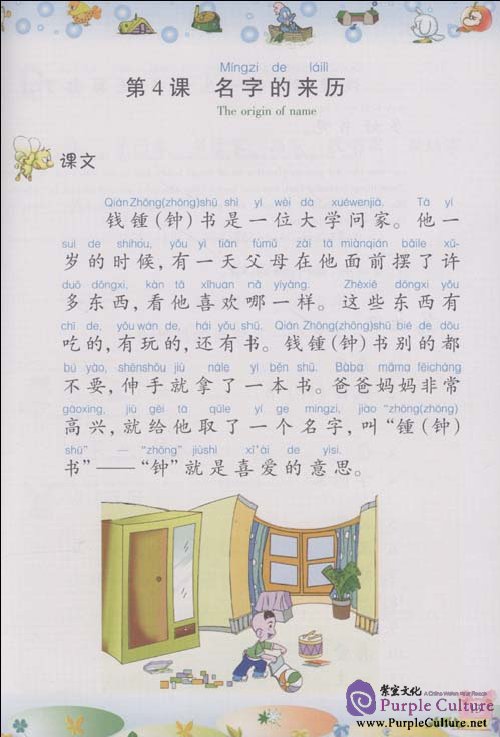 Míngzi de láilì
第4课 名字的来历
The origin of name
课文
Qián Zhōng(zhōng)shū shì yí wèi dà xuéwenjiā. Tā yí
钱锺(钟)书是一位大学问家。他一
suì de shíhou, yǒu yì tiān fùmǔ zài tā miànqián bǎile xǔ-
岁的时候,有一天父母在他面前摆了许
duō dōngxi, kàn tā xǐhuan nǎ yíyàng. Zhèxiē dōngxi yǒu
多东西,看他喜欢哪一样。这些东西有
chī de, yǒu wán de, hái yǒu shū. Qián Zhōng(zhōng)shū bié de dōu
吃的,有玩的,还有书。钱锺(钟)书别的都
bú yào, shēnshǒu jiù nále yì běn shū. Bàba māma fēicháng
不要,伸手就拿了一本书。爸爸妈妈非常
gāoxìng, jiù gěi tā qǔle yí ge míngzi, jiào “zhōng(zhōng)
高兴,就给他取了一个名字,叫“锺(钟)
shū” — “zhōng” jiùshì xǐ'ài de yìsi.
书”——“钟”就是喜爱的意思。
紫宸文化 A China Within Your Reach
Purple Culture
www.PurpleCulture.net